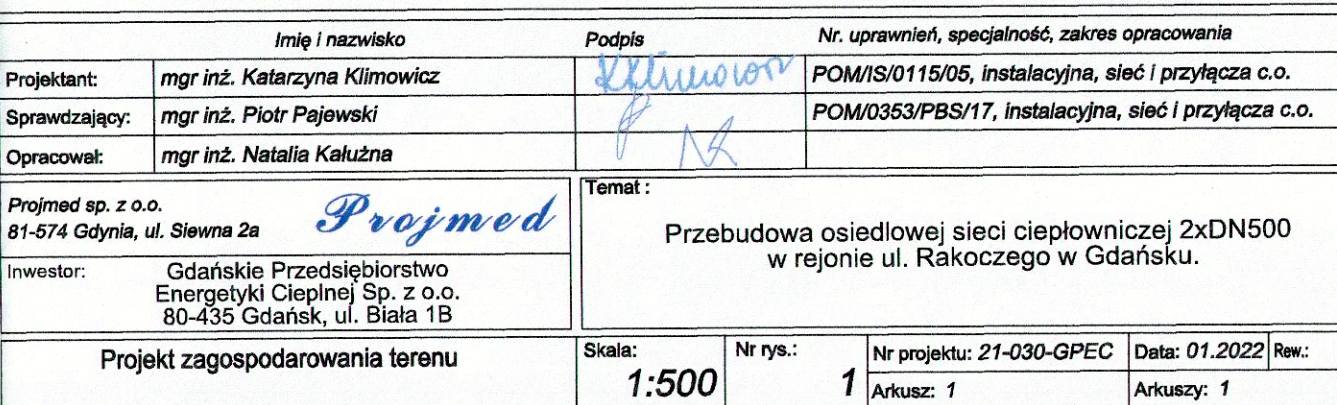 Imię i nazwisko Podpis Nr. uprawnień, specjalność, zakres opracowania
Projektant: mgr inż. Katarzyna Klimowicz KKlimowicz POM/IS/0115/05, instalacyjna, sieć i przyłącza c.o.
Sprawdzający: mgr inż. Piotr Pajewski POM/0353/PBS/17, instalacyjna, sieć i przyłącza c.o.
Opracował: mgr inż. Natalia Kałużna
Projmed sp. z o.o.
81-574 Gdynia, ul. Siewna 2a
Projmed
Inwestor: Gdańskie Przedsiębiorstwo
Energetyki Cieplnej Sp. z o.o.
80-435 Gdańsk, ul. Biała 1B
Temat :
Przebudowa osiedlowej sieci ciepłowniczej 2xDN500
w rejonie ul. Rakoczego w Gdańsku.
Projekt zagospodarowania terenu
Skala:
1:500
Nr rys.:
1
Nr projektu: 21-030-GPEC Data: 01.2022 Rew.:
Arkusz: 1 Arkuszy: 1